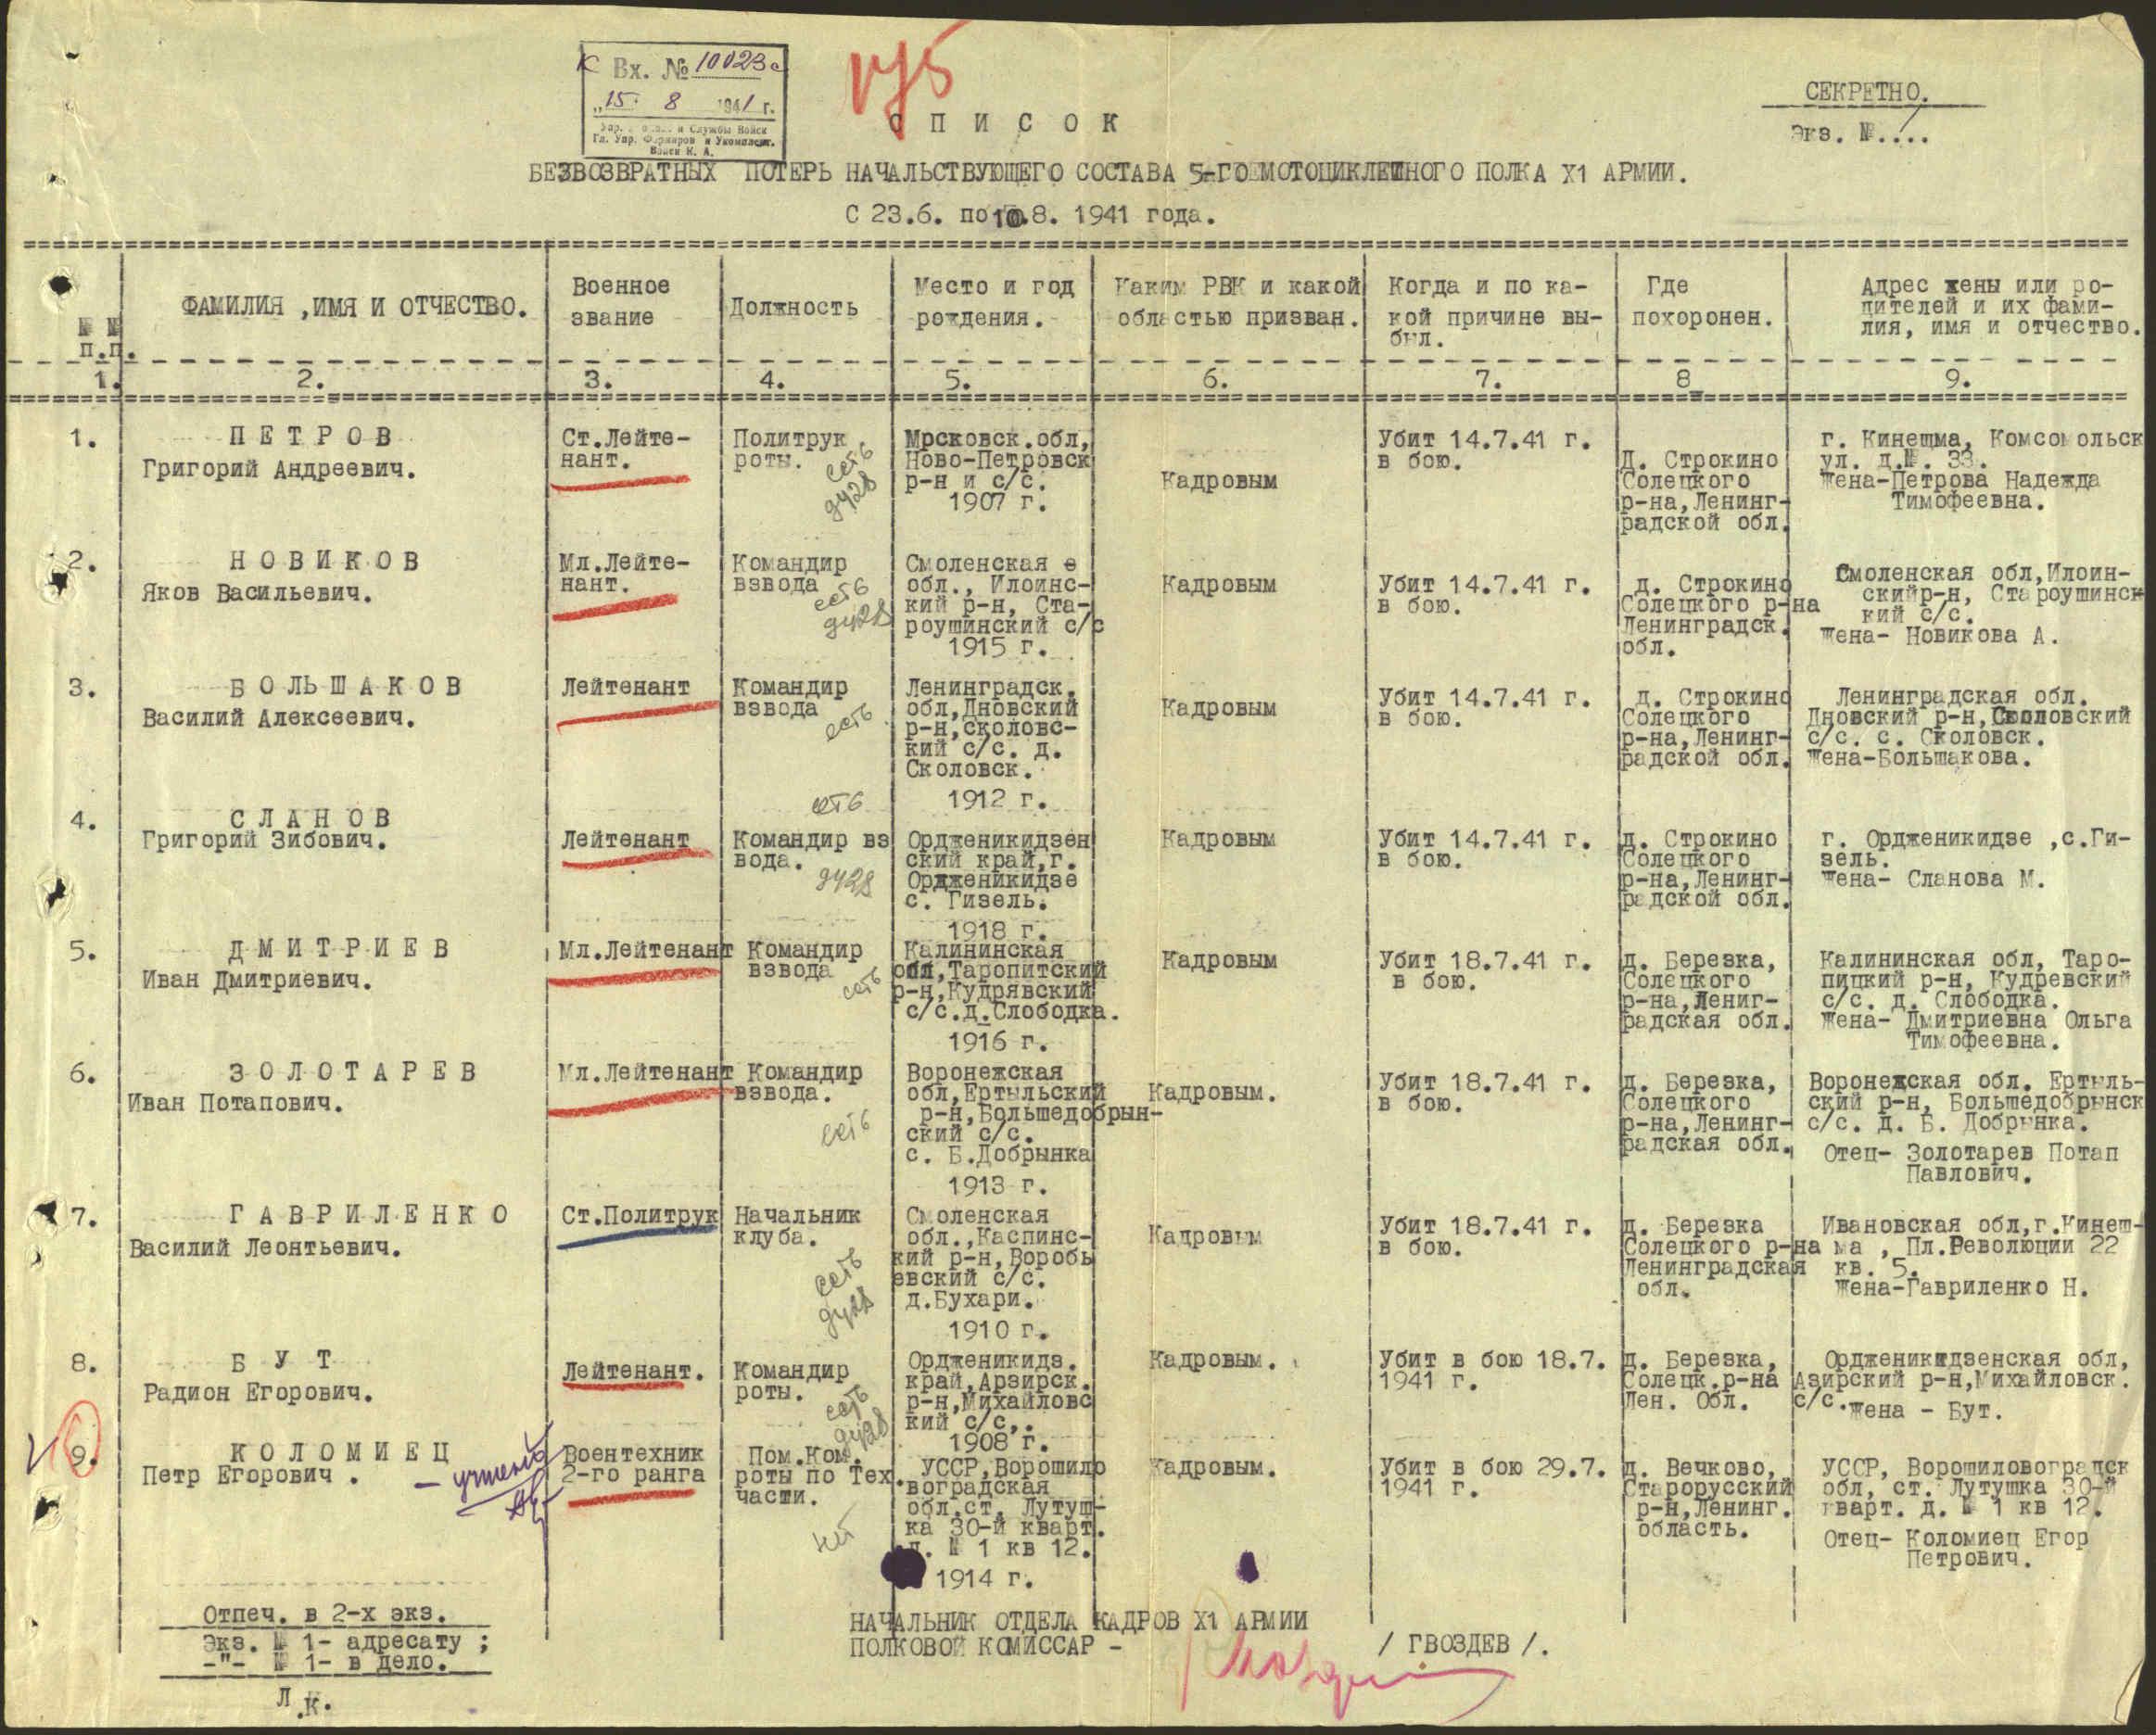 Вх. № 10023с
"15" 8 1941 г.
и Службы Войск
Гл. Упр. Формиров и Укомплект.
Войск К. А.
СЕКРЕТНО.
Экз. №....
С П И С О К
БЕЗВОЗВРАТНЫХ ПОТЕРЬ НАЧАЛЬСТВУЮЩЕГО СОСТАВА 5-ГО МОТОЦИКЛЕТНОГО ПОЛКА Х1 АРМИИ.
С 23.6. по 10.8. 1941 года.
№ №
п.п.
ФАМИЛИЯ ,ИМЯ И ОТЧЕСТВО.
Военное
звание
Должность
Место и год
рождения.
Каким РВК и какой
областью призван.
Когда и по ка-
кой причине вы-
был.
Где
похоронен.
Адрес жены или ро-
дителей и их фами-
лия, имя и отчество.
1. 2. 3. 4. 5. 6. 7. 8 9.
1.
П Е Т Р О В
Григорий Андреевич.
Ст.Лейте-
нант.
Политрук
роты.
есть
Мрсковск.обл,
Ново-Петровск
р-н и с/с.
1907 г.
Кадровым
Убит 14.7.41 г.
в бою.
Д. Строкино
Солецкого
р-на,Ленинг-
радской обл.
г. Кинешма, Комсомольск
ул. д.№. 33.
Жена-Петрова Надежда
Тимофеевна.
2.
Н О В И К О В
Яков Васильевич.
Мл.Лейте-
нант.
Командир
взвода
есть
Смоленская е
обл., Илоинс-
кий р-н, Ста-
роушинский с/с
1915 г.
Кадровым
Убит 14.7.41 г.
в бою.
д. Строкино
Солецкого р-на
Ленинградск.
обл.
Смоленская обл,Илоин-
скийр-н, Староушинск
кий с/с.
Жена- Новикова А.
3.
Б О Л Ь Ш А К О В
Василий Алексеевич.
Лейтенант
Командир
взвода
есть
Ленинградск.
обл,Дновский
р-н,сколовс-
кий с/с. д.
Сколовск.
1912 г.
Кадровым
Убит 14.7.41 г.
в бою.
д. Строкино
Солецкого
р-на,Ленинг-
радской обл.
Ленинградская обл.
Дновский р-н,Сколовский
с/с. с. Сколовск.
Жена-Большакова.
4.
С Л А Н О В
Григорий Зибович.
Лейтенант
есть
Командир вз
вода.
Ордженикидзен
ский край,г.
Ордженикидзе
с. Гизель.
1918 г.
Кадровым
Убит 14.7.41 г.
в бою.
д. Строкино
Солецкого
р-на,Ленинг-
радской обл.
г. Ордженикидзе ,с.Ги-
зель.
Жена- Сланова М.
5.
Д М И Т Р И Е В
Иван Дмитриевич.
Мл.Лейтенант
Командир
взвода
есть
Калининская
обл,Таропитский
р-н,Кудрявский
с/с.д.Слободка.
1916 г.
Кадровым
Убит 18.7.41 г.
в бою.
д. Березка,
Солецкого
р-на,Лениг-
радская обл.
Калининская обл, Таро-
пицкий р-н, Кудревский
с/с. д. Слободка.
Жена- Дмитриевна Ольга
Тимофеевна.
6.
З О Л О Т А Р Е В
Иван Потапович.
Мл.Лейтенант
Командир
взвода.
есть
Воронежская
обл,Ертыльский
р-н,Большедобрын-
ский с/с.
с. Б.Добрынка
1913 г.
Кадровым.
Убит 18.7.41 г.
в бою.
д. Березка,
Солецкого
р-на,Ленинг-
радская обл.
Воронежская обл. Ертыль-
ский р-н, Большедобрынск
с/с. д. Б. Добрынка.
Отец- Золотарев Потап
Павлович.
7.
Г А В Р И Л Е Н К О
Василий Леонтьевич.
Ст.Политрук
Начальник
клуба.
есть
Смоленская
обл.,Каспинс-
кий р-н,Воробь
евский с/с.
д.Бухари.
1910 г.
Кадровым
Убит 18.7.41 г.
в бою.
д. Березка
Солецкого р-на
Ленинградская
обл.
Ивановская обл,г.Кинеш-
ма , Пл.Революции 22
кв. 5.
Жена-Гавриленко Н.
8.
Б У Т
Радион Егорович.
Лейтенант.
Командир
роты.
есть
Ордженикидз.
край,Арзирск.
р-н,Михайловс
кий с/с,.
1908 г.
Кадровым.
Убит в бою 18.7.
1941 г.
д. Березка,
Солецк.р-на
Лен. Обл.
Ордженикидзенская обл,
Азирский р-н,Михайловск.
с/с.Жена - Бут.
9.
К О Л О М И Е Ц
Петр Егорович .
- учтено
Воентехник
2-го ранга
Пом.Ком.
роты по Тех.
части.
нет
УССР,Ворошило
воградская
обл.ст. Лутуш-
ка 30-й кварт.
д. № 1 кв 12.
1914 г.
Кадровым.
Убит в бою 29.7.
1941 г.
д. Вечково,
Старорусский
р-н,Ленинг.
область.
УССР, Ворошиловоградск
обл, ст. Лутушка 30-й
кварт. д. № 1 кв 12.
Отец- Коломиец Егор
Петрович.
Отпеч. в 2-х экз.
Экз. № 1- адресату ;
-"- № 1- в дело.
Л.к.
НАЧАЛЬНИК ОТДЕЛА КАДРОВ Х1 АРМИИ
ПОЛКОВОЙ КОМИССАР -
/ ГВОЗДЕВ /.